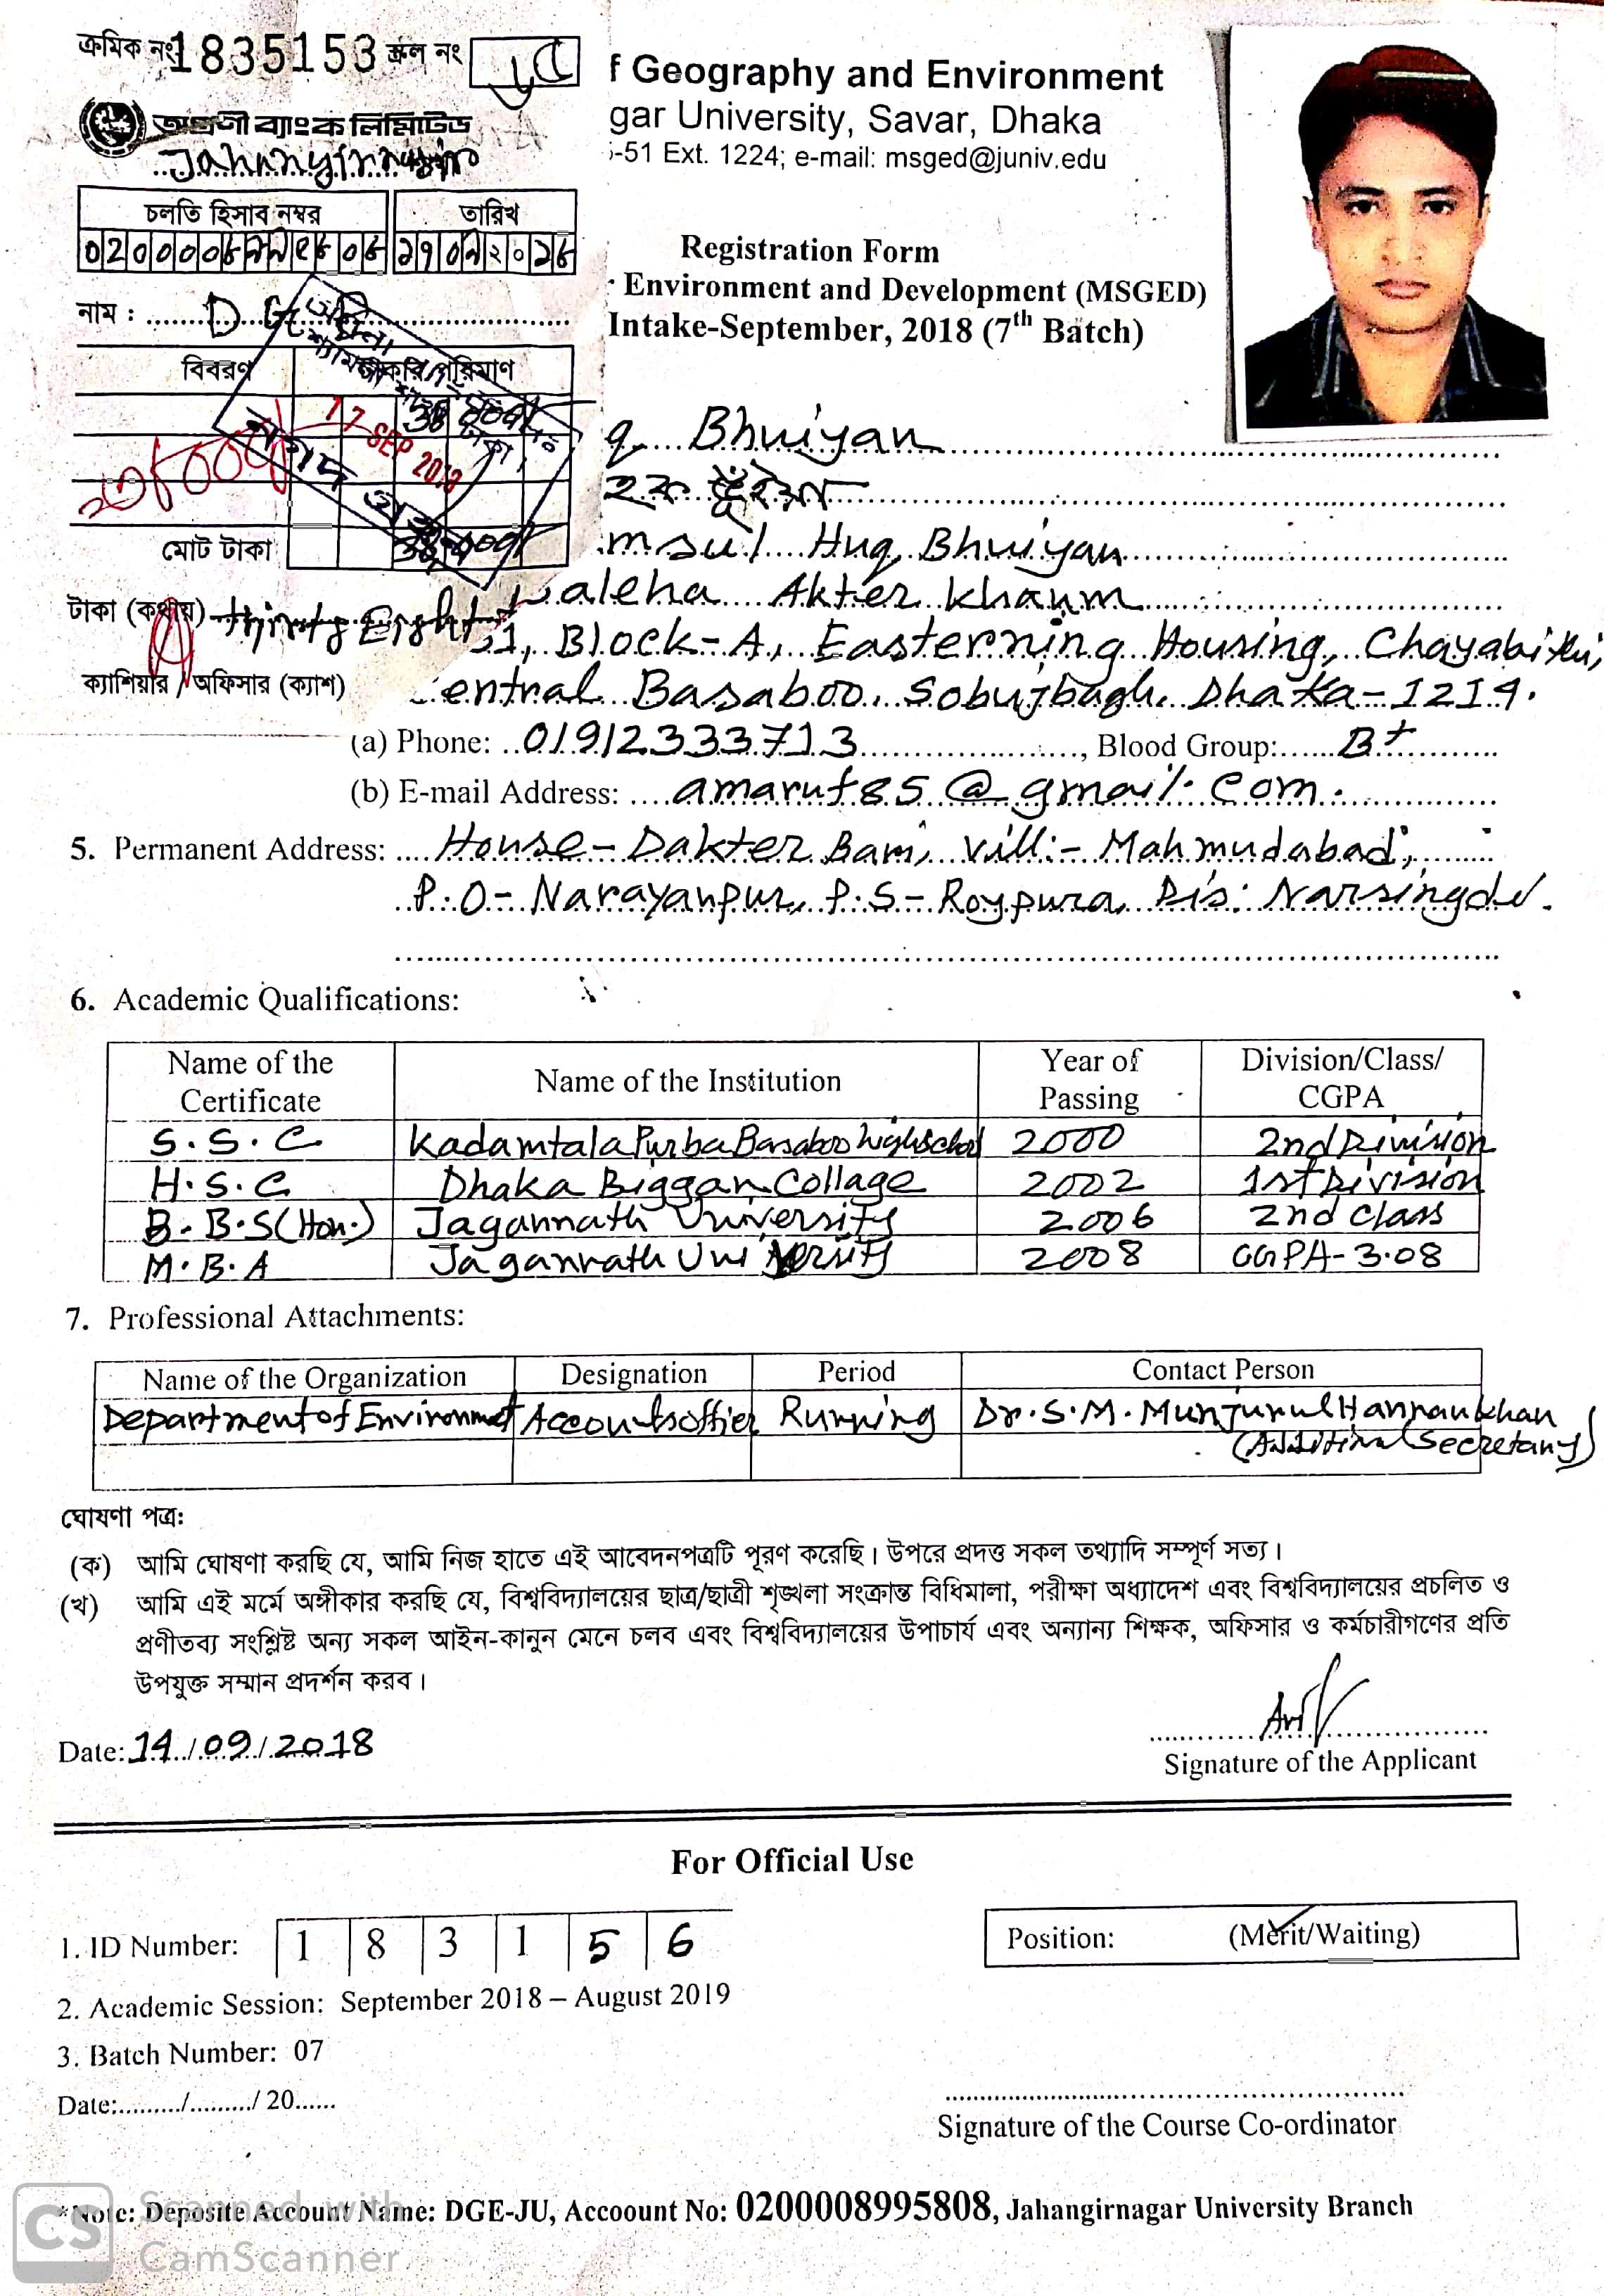 ক্রমিক নং 1835153 স্ক্রল নং
অগ্রণী ব্যাংক লিমিটেড
f Geography and Environment
gar University, Savar, Dhaka
-51 Ext. 1224; e-mail: msged@juniv.edu
চলতি হিসাব নম্বর তারিখ
Registration Form
Environment and Development (MSGED)
Intake-September, 2018 (7th Batch)
নাম :
বিবরণ টাকার পরিমাণ
17 SEP 2018
মোট টাকা
টাকা (কথায়) Thirty Eight
ক্যাশিয়ার / অফিসার (ক্যাশ)
q Bhuiyan
হক ভূঁইয়া
msul Huq Bhuiyan
aleha Akter Khanm
31, Block-A, Easterning Housing, Chayabithi,
entral Basaboo, Sobujbagh, Dhaka-1214.
(a) Phone: 01912333713, Blood Group: B+
(b) E-mail Address: amaruf85@gmail.com.
5. Permanent Address: House-Dakter Bari, Vill:- Mahmudabad,
P.O-Narayanpur, P.S-Roypura, Dis: Narsingdi.
6. Academic Qualifications:
Name of the Certificate Name of the Institution Year of Passing Division/Class/ CGPA
S.S.C Kadamtala Purba Basaboo high school 2000 2nd Division
H.S.C Dhaka Biggan Collage 2002 1st Division
B.B.S (Hon.) Jagannath University 2006 2nd class
M.B.A Jagannath University 2008 CGPA-3.08
7. Professional Attachments:
Name of the Organization Designation Period Contact Person
Department of Environmet Accounts offier Running Dr. S.M. Munjurul Hannan Khan
(Additinal Secretary)
ঘোষণা পত্র:
(ক) আমি ঘোষণা করছি যে, আমি নিজ হাতে এই আবেদনপত্রটি পূরণ করেছি। উপরে প্রদত্ত সকল তথ্যাদি সম্পূর্ণ সত্য।
(খ) আমি এই মর্মে অঙ্গীকার করছি যে, বিশ্ববিদ্যালয়ের ছাত্র/ছাত্রী শৃঙ্খলা সংক্রান্ত বিধিমালা, পরীক্ষা অধ্যাদেশ এবং বিশ্ববিদ্যালয়ের প্রচলিত ও
প্রণীতব্য সংশ্লিষ্ট অন্য সকল আইন-কানুন মেনে চলব এবং বিশ্ববিদ্যালয়ের উপাচার্য এবং অন্যান্য শিক্ষক, অফিসার ও কর্মচারীগণের প্রতি
উপযুক্ত সম্মান প্রদর্শন করব।
Date: 14/09/2018
Signature of the Applicant
For Official Use
1. ID Number: 1 8 3 1 5 6 Position: (Merit/Waiting)
2. Academic Session: September 2018 – August 2019
3. Batch Number: 07
Date:........./........./ 20......
Signature of the Course Co-ordinator
*Note: Deposite Account Name: DGE-JU, Accoount No: 0200008995808, Jahangirnagar University Branch
CS Scanned with
CamScanner